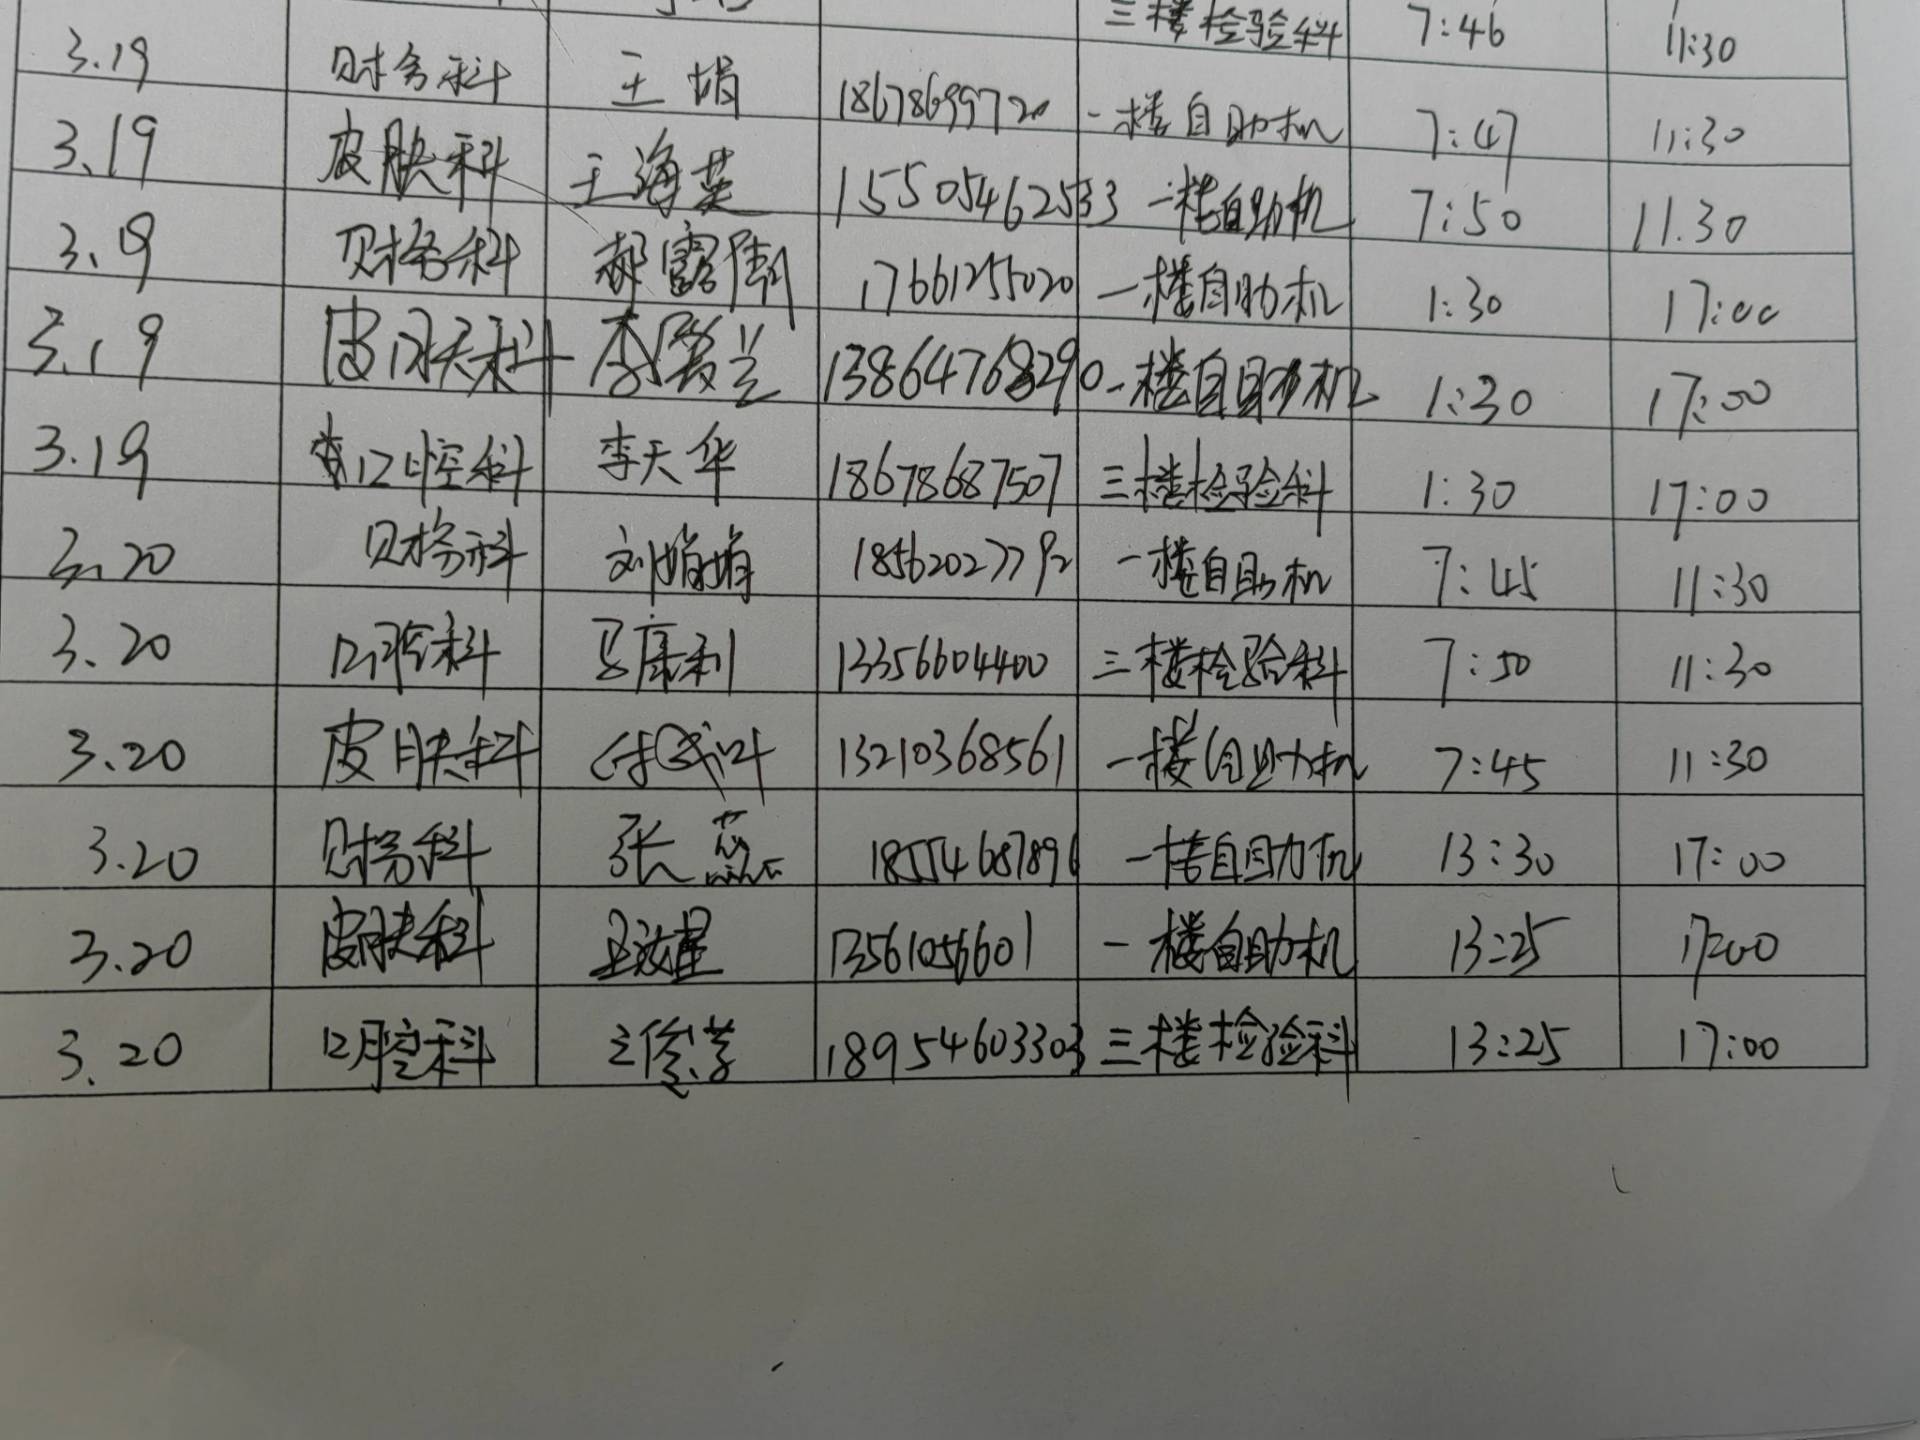 三楼检验科 7:46 11:30
3.19 财务科 王娟 18678699720 一楼自助机 7:47 11:30
3.19 皮肤科 王海英 15505462533 一楼自助机 7:50 11.30
3.19 财务科 郝露 17661255020 一楼自助机 1:30 17:00
3.19 皮肤科 李爱兰 13864768290 一楼自助机 1:30 17:00
3.19 口腔科 李天华 18678687507 三楼检验科 1:30 17:00
3.20 财务科 刘娟娟 18562027792 一楼自助机 7:45 11:30
3.20 口腔科 马康利 13356604400 三楼检验科 7:50 11:30
3.20 皮肤科 13210368561 一楼自助机 7:45 11:30
3.20 财务科 张蕊 18554687896 一楼自助机 13:30 17:00
3.20 皮肤科 13561056601 一楼自助机 13:25 17:00
3.20 口腔科 王俊芳 18954603303 三楼检验科 13:25 17:00